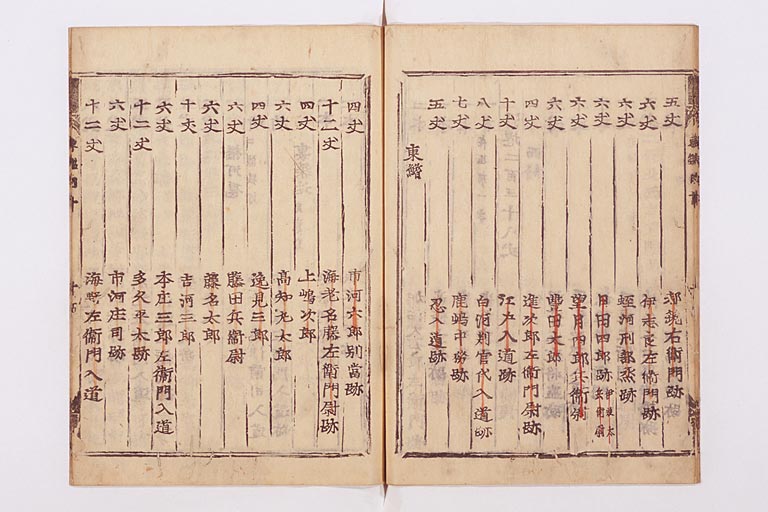 五丈 右衛門跡
六丈 伊志良左衛門跡
六丈 蛭河刑部丞跡
六丈 田四郎跡
六丈 望月四郎兵衛尉
六丈 豊田太郎跡
四丈 進次郎左衛門尉跡
十丈 江戸入道跡
八丈 白河判官代入道跡
七丈 鹿嶋中務跡
五丈 忍入道跡
四丈 市河六郎別當跡
十二丈 海老名藤左衛門尉跡
四丈 上嶋次郎
六丈 高知尾太郎
四丈 逸見三郎
六丈 藤田兵衛尉
六丈 藤名太郎
十丈 吉河三郎
六丈 本庄三郎左衛門入道
十二丈 多久平太跡
六丈 市河庄司跡
十二丈 海野左衛門入道